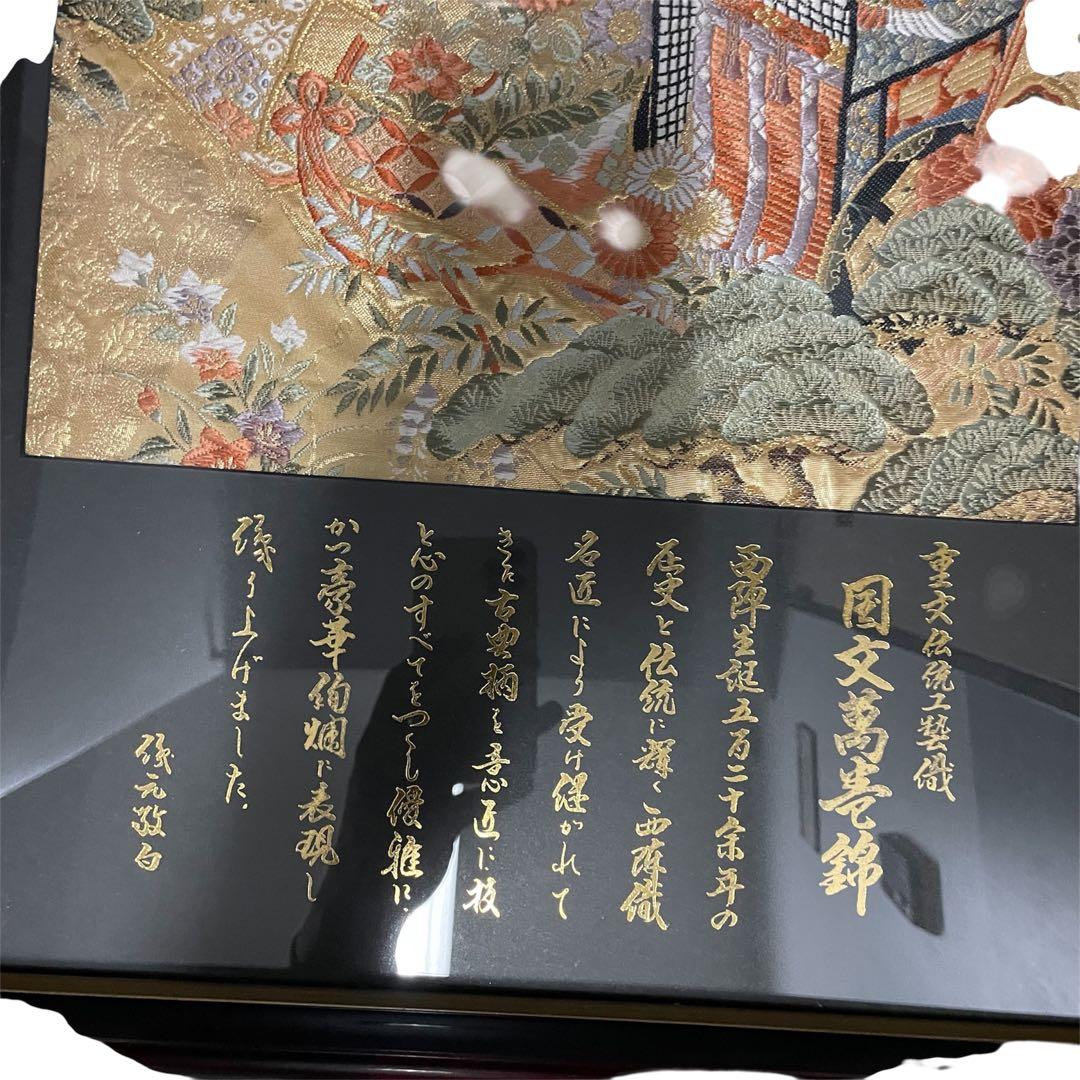 重文伝統工藝織
国文萬巻錦
西陣生誕五百二十余年の
歴史と伝統に輝く西陣織
名匠により受け継がれて
きた古典柄を意匠に技
と心のすべてをつくし優雅に、
かつ豪華絢爛に表現し
織り上げました。
織元敬白